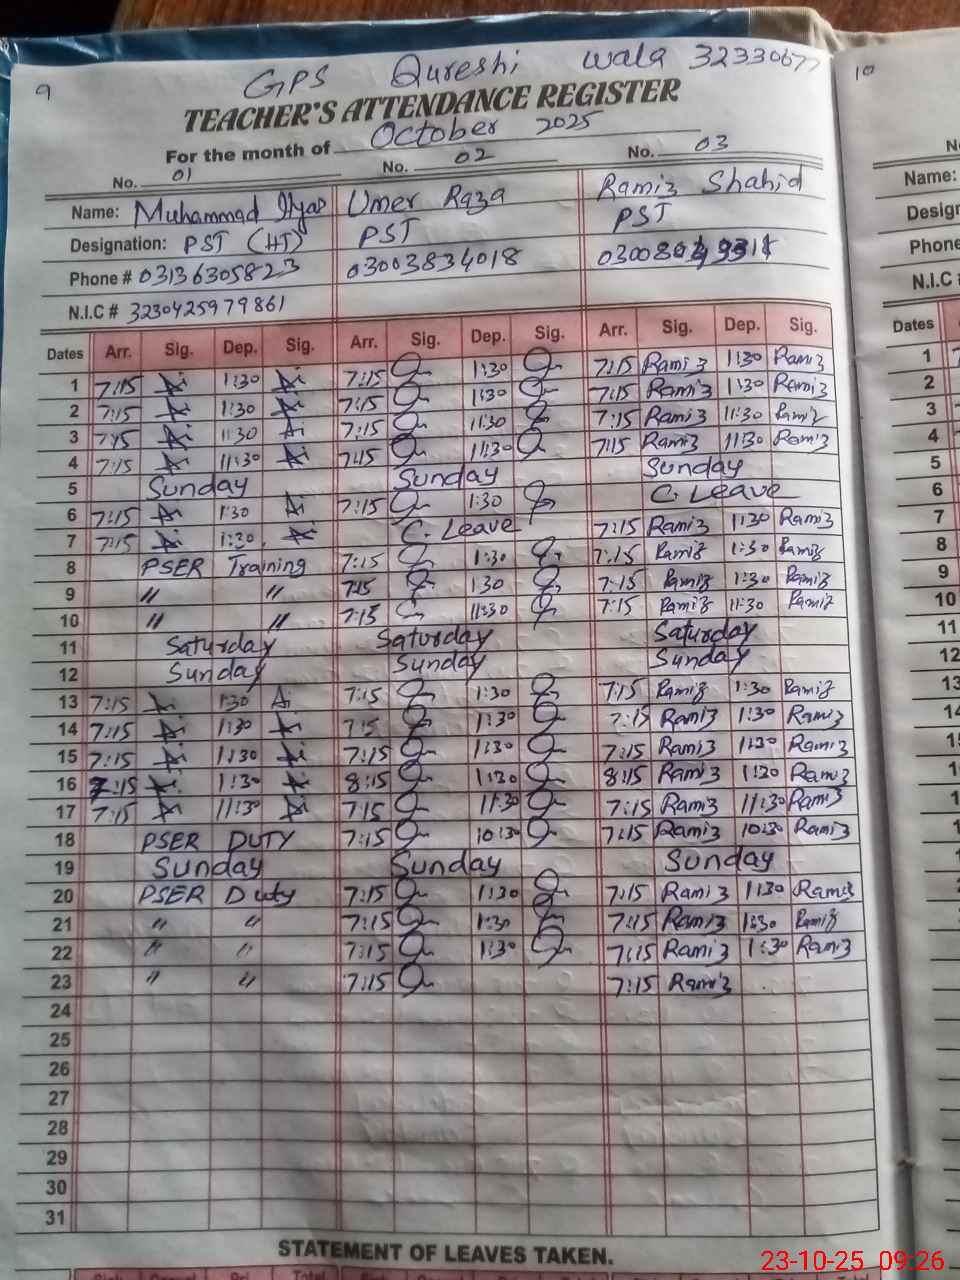 9
GPS Qureshi wala 32330677
10
TEACHER'S ATTENDANCE REGISTER
For the month of October 2025
No. 01 No. 02 No. 03
Name: Muhammad Ilyas Umer Raza Ramiz Shahid
Name:
Designation: PST (HT) PST PST
Phone # 03136305823 03003834018
Phone
N.I.C # 3230425979861
N.I.C
Dates Arr. Sig. Dep. Sig. Arr. Sig. Dep. Sig. Arr. Sig. Dep. Sig.
Dates
1 7:15 1:30 7:15 1:30 7:15 Ramiz 1:30 Ramiz
2 7:15 1:30 7:15 1:30 7:15 Ramiz 1:30 Ramiz
3 7:15 11:30 7:15 11:30 7:15 Ramiz 11:30 Ramiz
4 7:15 11:30 7:15 11:30 7:15 Ramiz 11:30 Ramiz
5 Sunday Sunday Sunday
6 7:15 1:30 7:15 1:30 C. Leave
7 7:15 1:30 C. Leave 7:15 Ramiz 1:30 Ramiz
8 PSER Training 7:15 1:30 7:15 Ramiz 1:30 Ramiz
9 " " 7:15 1:30 7:15 Ramiz 1:30 Ramiz
10 " " 7:15 11:30 7:15 Ramiz 11:30 Ramiz
11 Saturday Saturday Saturday
12 Sunday Sunday Sunday
13 7:15 1:30 7:15 1:30 7:15 Ramiz 1:30 Ramiz
14 7:15 1:30 7:15 1:30 7:15 Ramiz 1:30 Ramiz
15 7:15 1:30 7:15 1:30 7:15 Ramiz 1:30 Ramiz
16 7:15 1:30 8:15 1:30 8:15 Ramiz 1:30 Ramiz
17 7:15 11:30 7:15 11:30 7:15 Ramiz 11:30 Ramiz
18 PSER DUTY 7:15 10:30 7:15 Ramiz 10:30 Ramiz
19 Sunday Sunday Sunday
20 PSER Duty 7:15 1:30 7:15 Ramiz 1:30 Ramiz
21 " " 7:15 1:30 7:15 Ramiz 1:30 Ramiz
22 " " 7:15 1:30 7:15 Ramiz 1:30 Ramiz
23 " " 7:15 7:15 Ramiz
24
25
26
27
28
29
30
31
STATEMENT OF LEAVES TAKEN.
23-10-25 09:26